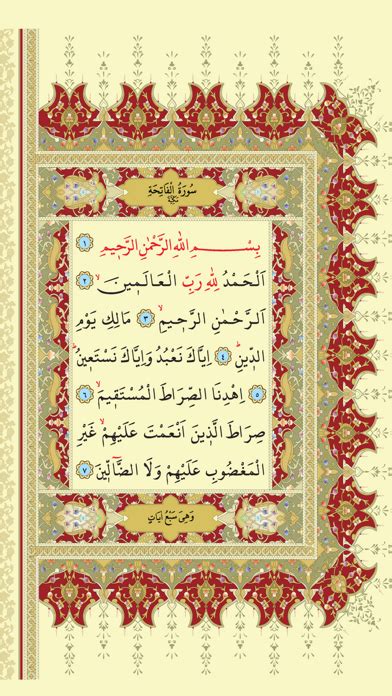 سُورَةُ الْفَاتِحَةِ
مَكِّيَّةٌ
بِسْــمِ اللهِ الرَّحْمٰنِ الرَّحِيمِ ١
اَلْحَمْدُ لِلّٰهِ رَبِّ الْعَالَمِينَۙ ٢
اَلرَّحْمٰنِ الرَّحِيمِۙ ٣ مَالِكِ يَوْمِ
الدِّينِۜ ٤ اِيَّاكَ نَعْبُدُ وَاِيَّاكَ نَسْتَعِينُۜ
٥ اِهْدِنَا الصِّرَاطَ الْمُسْتَقِيمَۙ ٦
صِرَاطَ الَّذِينَ اَنْعَمْتَ عَلَيْهِمْۙ غَيْرِ
الْمَغْضُوبِ عَلَيْهِمْ وَلَا الضَّٓالِّينَ ٧
وَهِىَ سَبْعُ اٰيَاتٍ